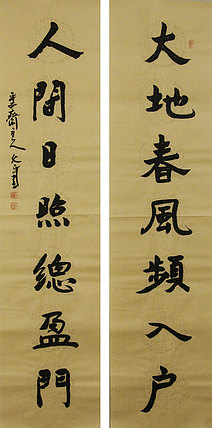 大地春風頻入户
人間日照總盈門